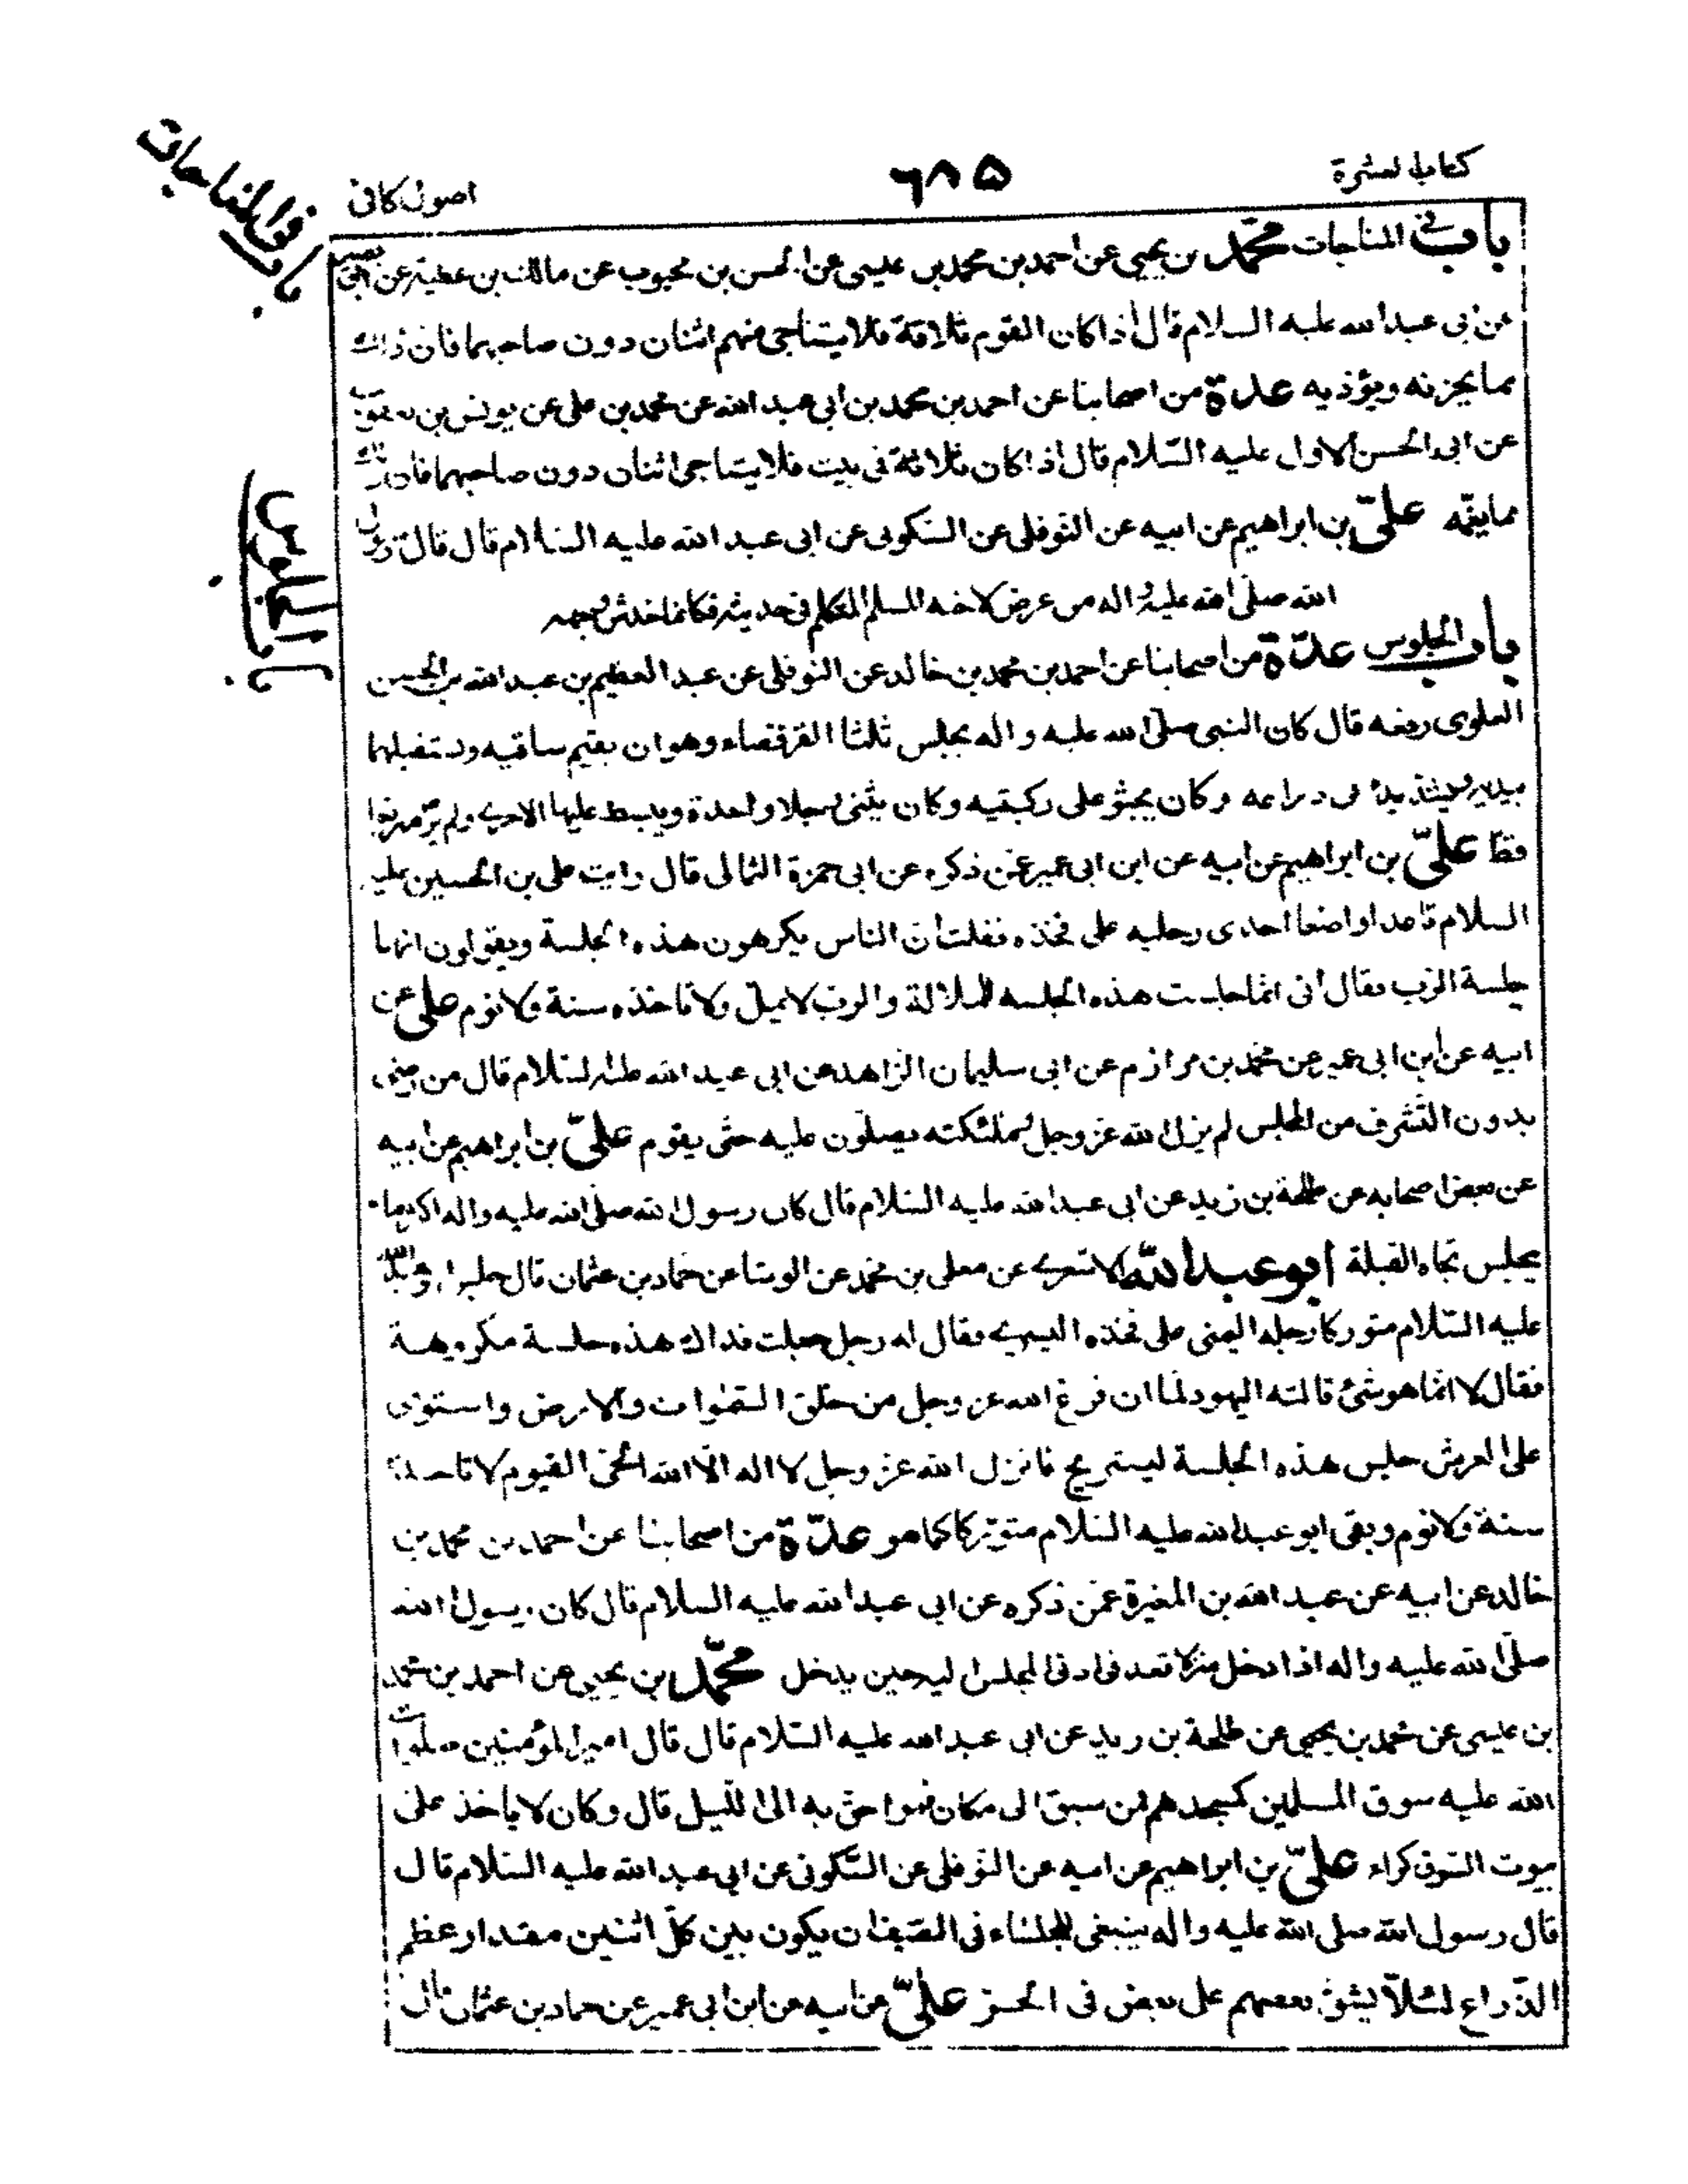 كتاب العشرة
٦٨٥
اصول كافى
باب فى المناجات
باب الجلوس
باب فى المناجات محمد بن يحيى عن احمد بن محمد بن عيسى عن الحسن بن محبوب عن مالك بن عطية عن ابى بصير
عن ابى عبد الله عليه السلام قال اذا كان القوم ثلاثة فلا يتناجى منهم اثنان دون صاحبهما فان ذلك
مما يحزنه ويؤذيه عدة من اصحابنا عن احمد بن محمد بن ابى عبد الله عن محمد بن على عن يونس بن يعقوب
عن ابى الحسن الاول عليه السّلام قال اذا كان ثلاثة فى بيت فلا يتناجى اثنان دون صاحبهما فان ذلك
مما يغمّه علىّ بن ابراهيم عن ابيه عن النوفلى عن السكونى عن ابى عبد الله عليه السلام قال قال رسول
الله صلى الله عليه واله من عرض لاخيه المسلم المتكلم فى حديثه فكانما خدش وجهه
باب الجلوس عدّة من اصحابنا عن احمد بن محمد بن خالد عن النوفلى عن عبد العظيم بن عبد الله بن الحسن
العلوى رفعه قال كان النبى صلى الله عليه واله يجلس ثلثا القرفصاء وهو ان يقيم ساقيه ويستقبلهما
بيديه ويشد يده فى ذراعه وكان يجثو على ركبتيه وكان يثنى رجلا واحدة ويبسط عليها الاخرى ولم ير متربعا
قط علىّ بن ابراهيم عن ابيه عن ابن ابى عمير عمّن ذكره عن ابى حمزة الثمالى قال رايت على بن الحسين عليه
السلام قاعدا واضعا احدى رجليه على فخذه فقلت ان الناس يكرهون هذه الجلسة ويقولون انها
جلسة الرب فقال انى انما جلست هذه الجلسه للملالة والرب لا يمل ولا تاخذه سنة ولا نوم على عن
ابيه عن ابن ابى عمير عن محمد بن مرازم عن ابى سليمان الزاهد عن ابى عبد الله عليه السلام قال من رضى
بدون التشرف من المجلس لم يزل الله عز وجل وملئكته يصلّون عليه حتى يقوم علىّ بن ابراهيم عن ابيه
عن بعض اصحابه عن طلحة بن زيد عن ابى عبد الله عليه السلام قال كان رسول الله صلى الله عليه واله اكثر ما
يجلس تجاه القبلة ابو عبد الله الاشعرى عن معلى بن محمد عن الوشا عن حماد بن عثمان قال جلس ابو عبد الله
عليه السّلام متوركا رجله اليمنى على فخذه اليسرى فقال له رجل جعلت فداك هذه جلسة مكروهة
فقال لا انما هو شئ قالته اليهود لما ان فرغ الله عز وجل من خلق السموات والارض واستوى
على العرش جلس هذه الجلسة ليستريح فانزل الله عز وجل لا اله الّا الله الحى القيوم لا تاخذه
سنة ولا نوم وبقى ابو عبد الله عليه السلام متوركا كما هو عدّة من اصحابنا عن احمد بن محمد بن
خالد عن ابيه عن عبد الله بن المغيرة عمّن ذكره عن ابى عبد الله عليه السلام قال كان رسول الله
صلى الله عليه واله اذا دخل منزلا قعد فى ادنى المجلس اليه حين يدخل محمّد بن يحيى عن احمد بن محمد
بن عيسى عن محمد بن يحيى عن طلحة بن زيد عن ابى عبد الله عليه السّلام قال قال امير المؤمنين صلوات
الله عليه سوق المسلمين كمسجدهم فمن سبق الى مكان فهو احق به الى الليل قال وكان لا ياخذ على
بيوت السوق كراء علىّ بن ابراهيم عن ابيه عن النوفلى عن السّكونى عن ابى عبد الله عليه السلام قال
قال رسول الله صلى الله عليه واله ينبغى للجلساء فى الصّيف ان يكون بين كلّ اثنين مقدار عظم
الذّراع لئلّا يشق بعضهم على بعض فى الحـر علىّ عن ابيه عن ابن ابى عمير عن حماد بن عثمان قال